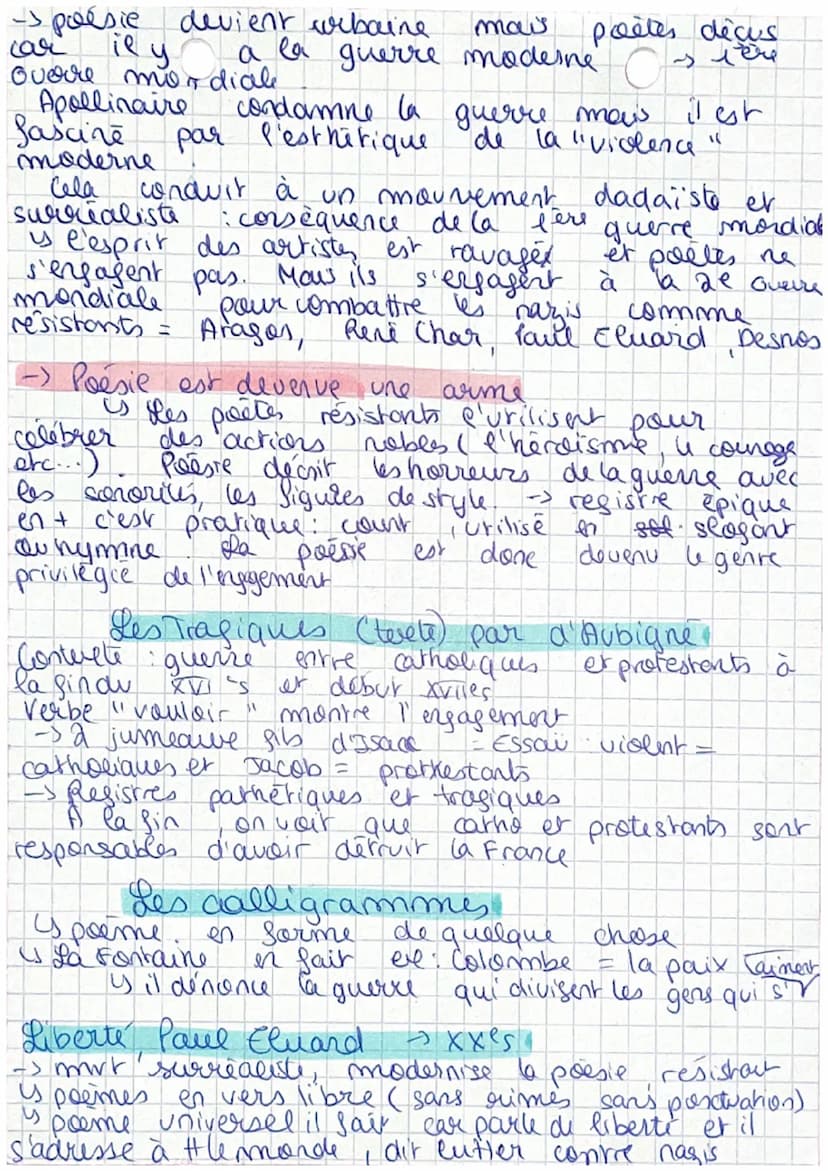 -> poésie devient urbaine mais poètes déçus
car il y a la guerre moderne -> 1ère
Guerre mondiale.
Apollinaire condamne la guerre mais il est
fasciné par l'esthétique de la "violence"
moderne
Cela conduit à un mouvement dadaïste et
surréaliste : conséquence de la 1ère guerre mondiale
↳ l'esprit des artistes est ravagée et poètes ne
s'engagent pas. Mais ils s'engagent à la 2e Guerre
mondiale pour combattre les nazis comme
résistants = Aragon, René Char, Paul Eluard, Desnos
-> Poésie est devenue une arme
↳ Les poètes résistants l'utilisent pour
célébrer des actions nobles (l'héroïsme, le courage
etc...). Poésie décrit les horreurs de la guerre avec
les sonorités, les figures de style. -> registre épique
en + c'est pratique : court, utilisé en slogant
ou hymne. La poésie est donc devenu le genre
privilégié de l'engagement
Les Tragiques (texte) par d'Aubigné
Contexte : guerre entre catholiques et protestants à
la fin du XVI s et début XVIIes
Verbe "vouloir" montre l'engagement
-> 2 jumeaux fils d'Isaac = Essaü violent =
catholiques et Jacob = prothestants
-> Registres pathétiques et tragiques
À la fin, on voit que catho et protestants sont
responsables d'avoir détruit la France
Les calligrammes
↳ poème en forme de quelque chose
↳ La Fontaine en fait ex : Colombe = la paix
↳ il dénonce la guerre qui divisent les gens qui s'aiment
Liberté Paul Eluard -> XXes
-> mvt surréaliste, modernise la poésie résistant
↳ poèmes en vers libre (sans rimes sans ponctuation)
↳ poème universel il fait car parle de liberté et il
s'adresse à tt le monde, dit lutter contre nazis